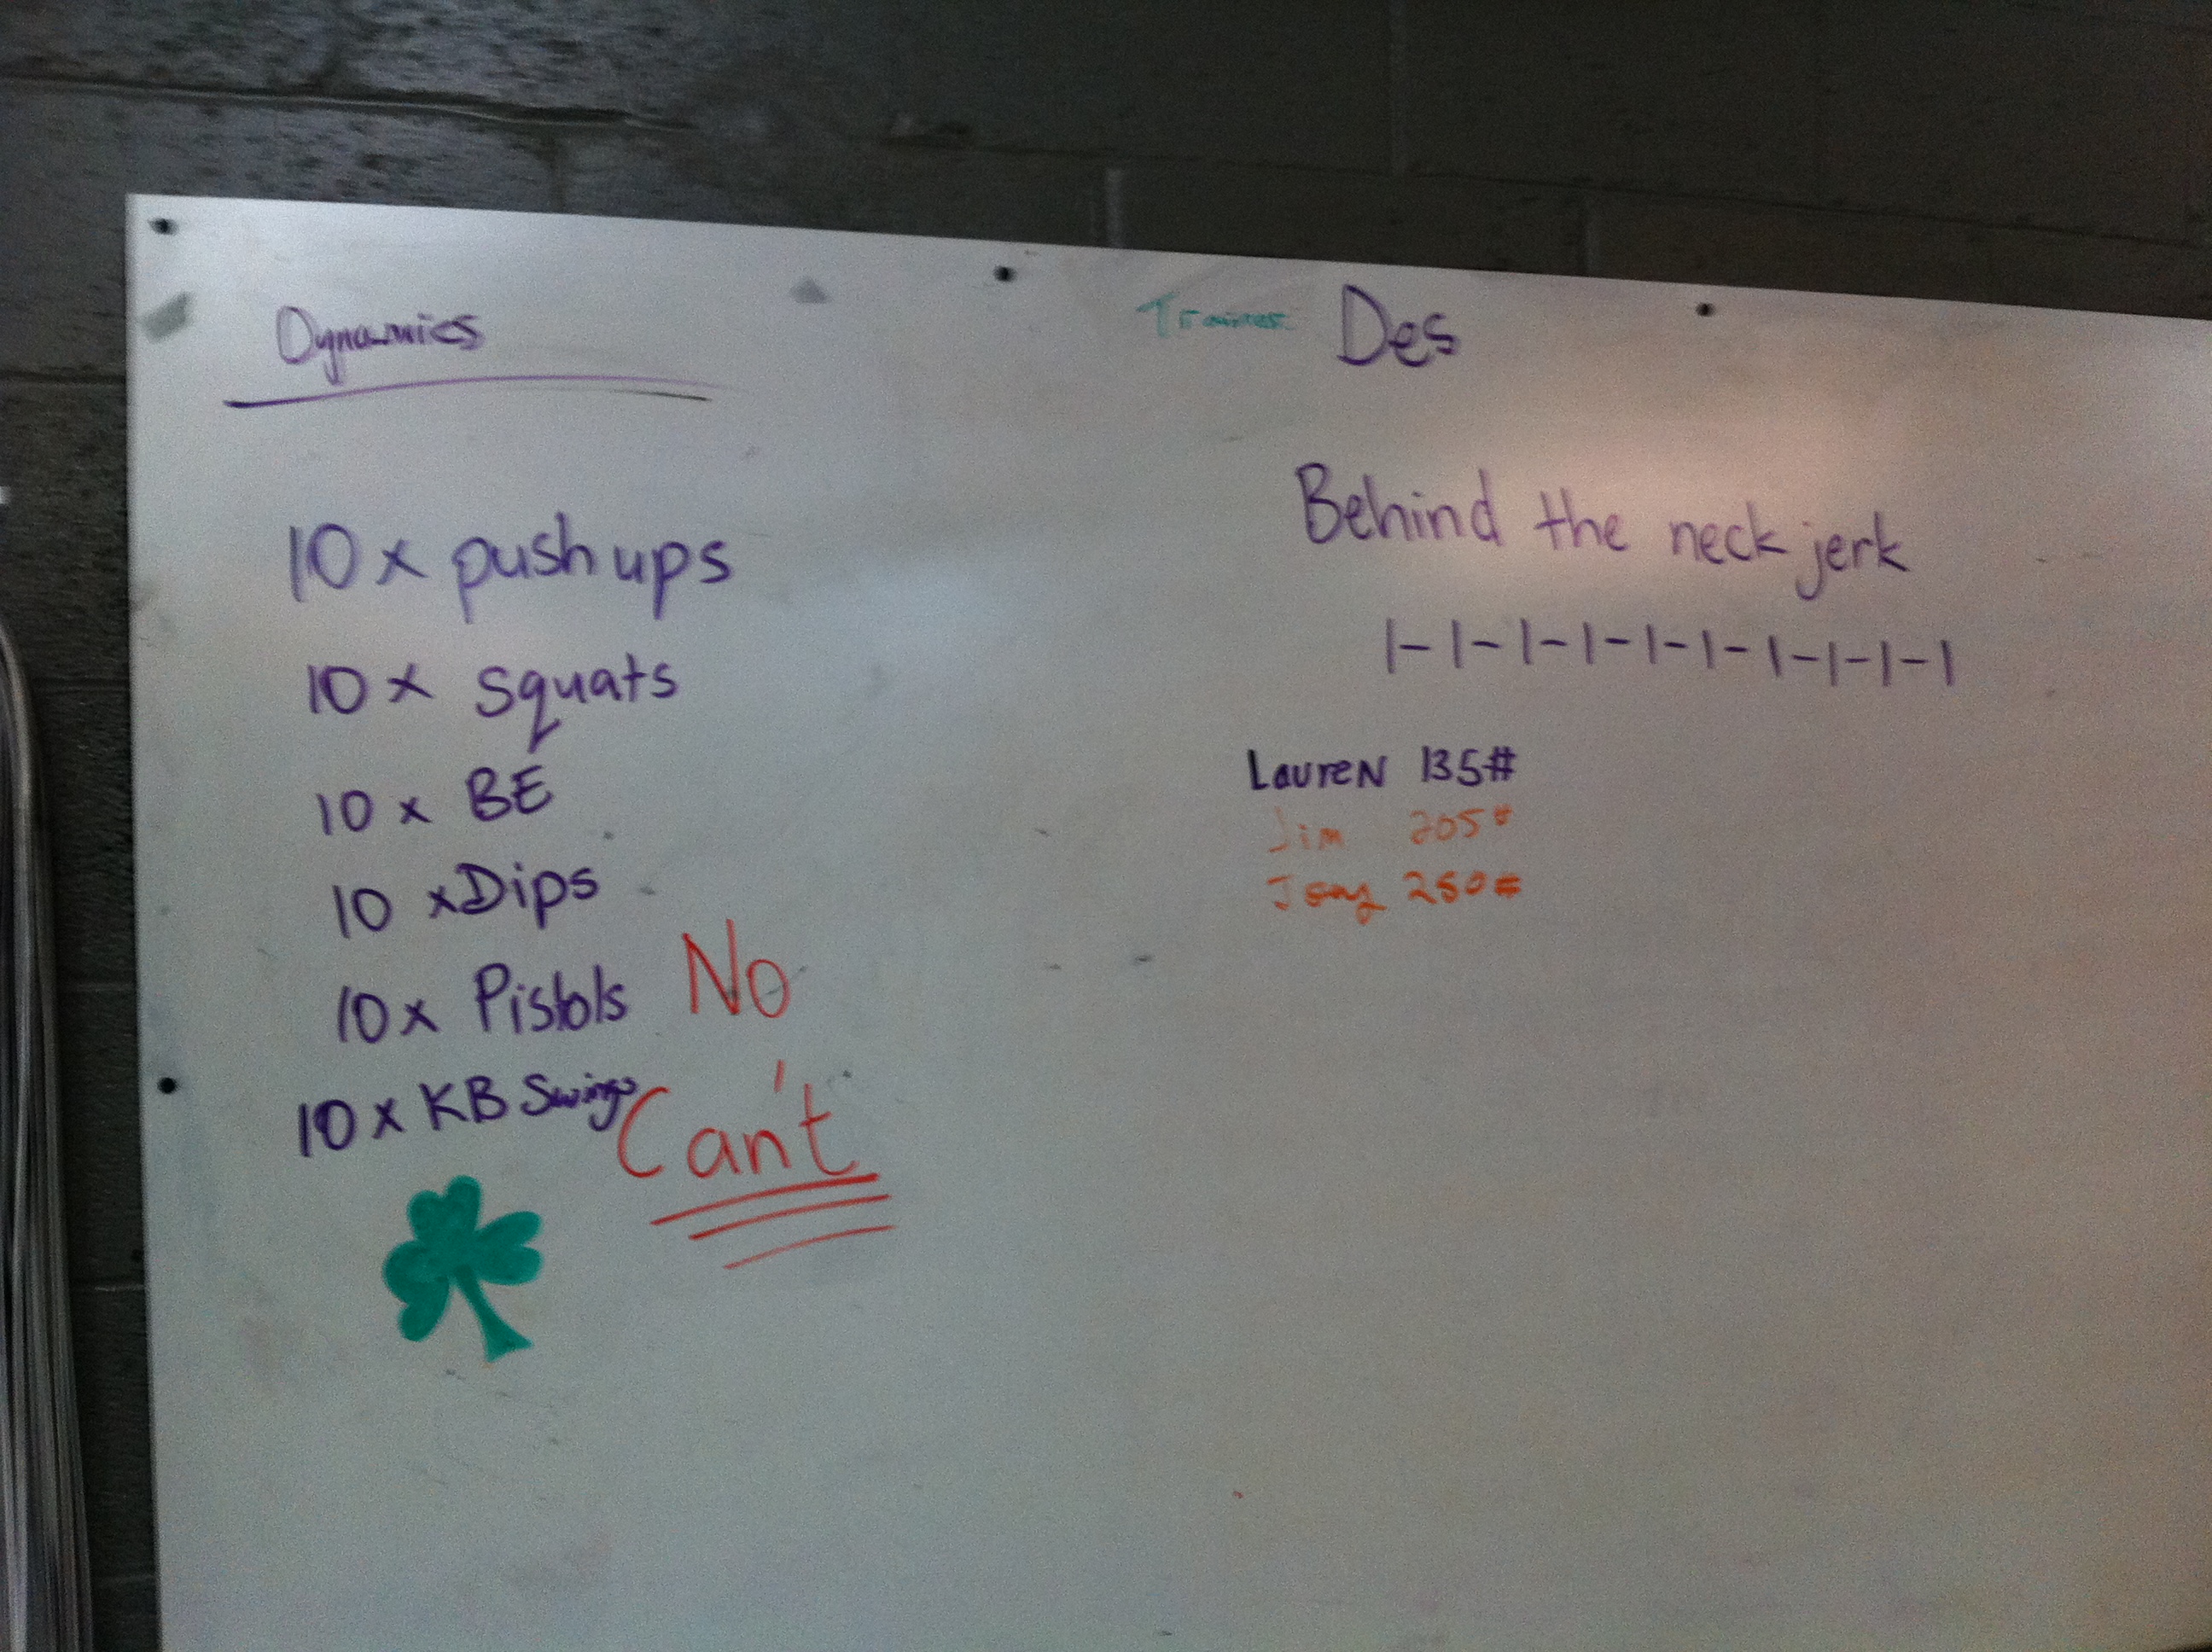 Dynamics
10 x push ups
10 x squats
10 x BE
10 x Dips
10 x Pistols
10 x KB Swings
No
Can't
Trainer Des
Behind the neck jerk
1-1-1-1-1-1-1-1-1-1
Lauren 135#
Jim 205#
250#